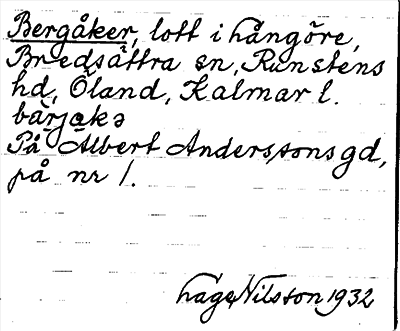 Bergåker, lott i hångöre,
Bredsättra sn, Runstens
hd, Öland, Kalmar l.
bärjakə
På Albert Anderssons gd,
på nr 1.
Hage Nilsson 1932